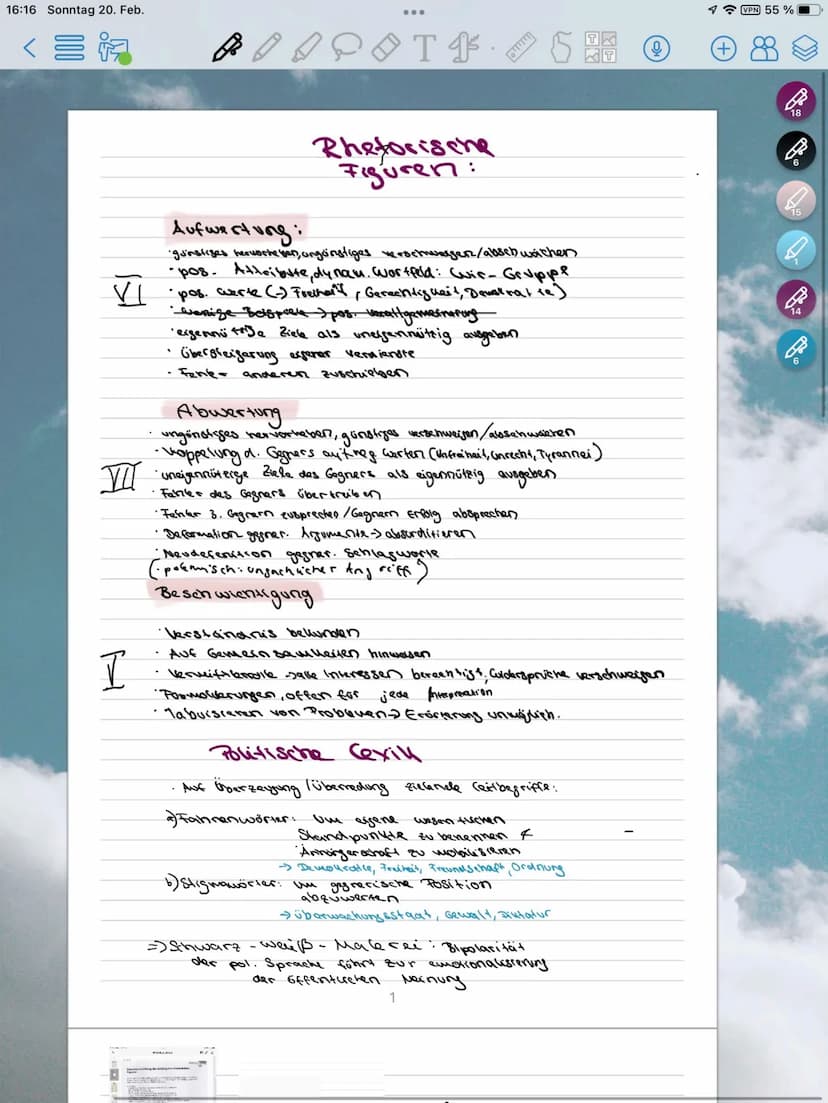 16:16 Sonntag 20. Feb.
VPN 55 %
18
6
15
1
14
6
Rhetorische
Figuren:
Aufwertung:
· günstiges hervorheben, ungünstiges verschweigen/abschwächen
· pos. Attribute, dynam. Wortfeld: Wir-Gruppe
VI
· pos. Werte (→ Freiheit, Gerechtigkeit, Demokratie)
· wenige Beispiele → pos. Verallgemeinerung
· eigennützige Ziele als uneigennützig ausgeben
· Übersteigerung eigener Verdienste
· Fehler anderen zuschieben
Abwertung
· ungünstiges hervorheben, günstiges verschweigen/abschwächen
· Koppelung d. Gegners auf neg. Werten (Unfreiheit, Unrecht, Tyrannei)
VII
· uneigennützige Ziele des Gegners als eigennützig ausgeben
· Fehler des Gegners übertreiben
· Fehler z. Gegnern zusprechen / Gegnern Erfolg absprechen
· Deformation gegner. Argumente → absurditieren
· Neudefinition gegner. Schlagworte
(· polemisch: unsachlicher Angriff)
Beschwichtigung
· Verständnis bekunden
· Auf Gemeinsamkeiten hinweisen
V
· Vermittlerrolle → alle Interessen berechtigt, Widersprüche verschweigen
· Formulierungen, offen für jede Interpretation
· Tabuisieren von Problemen → Erörterung unmöglich.
Politische Lexik
· Auf Überzeugung / Überredung zielende Leitbegriffe:
a) Fahnenwörter: Um eigene wesentlichen
Standpunkte zu benennen &
Anhängerschaft zu mobilisieren
→ Demokratie, Freiheit, Freundschaft, Ordnung
b) Stigmawörter: Um gegnerische Position
abzuwerten
→ Überwachungsstaat, Gewalt, Diktatur
=> Schwarz-weiß-Malerei: Bipolarität
der pol. Sprache führt zur emotionalisierung
der öffentlichen Meinung
1